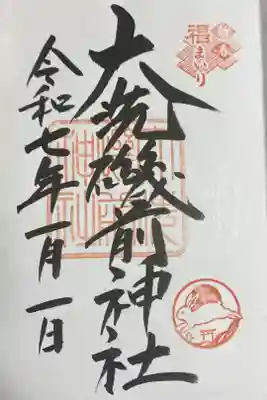 新春
福まいり
大洗磯前神社
令和七年一月一日